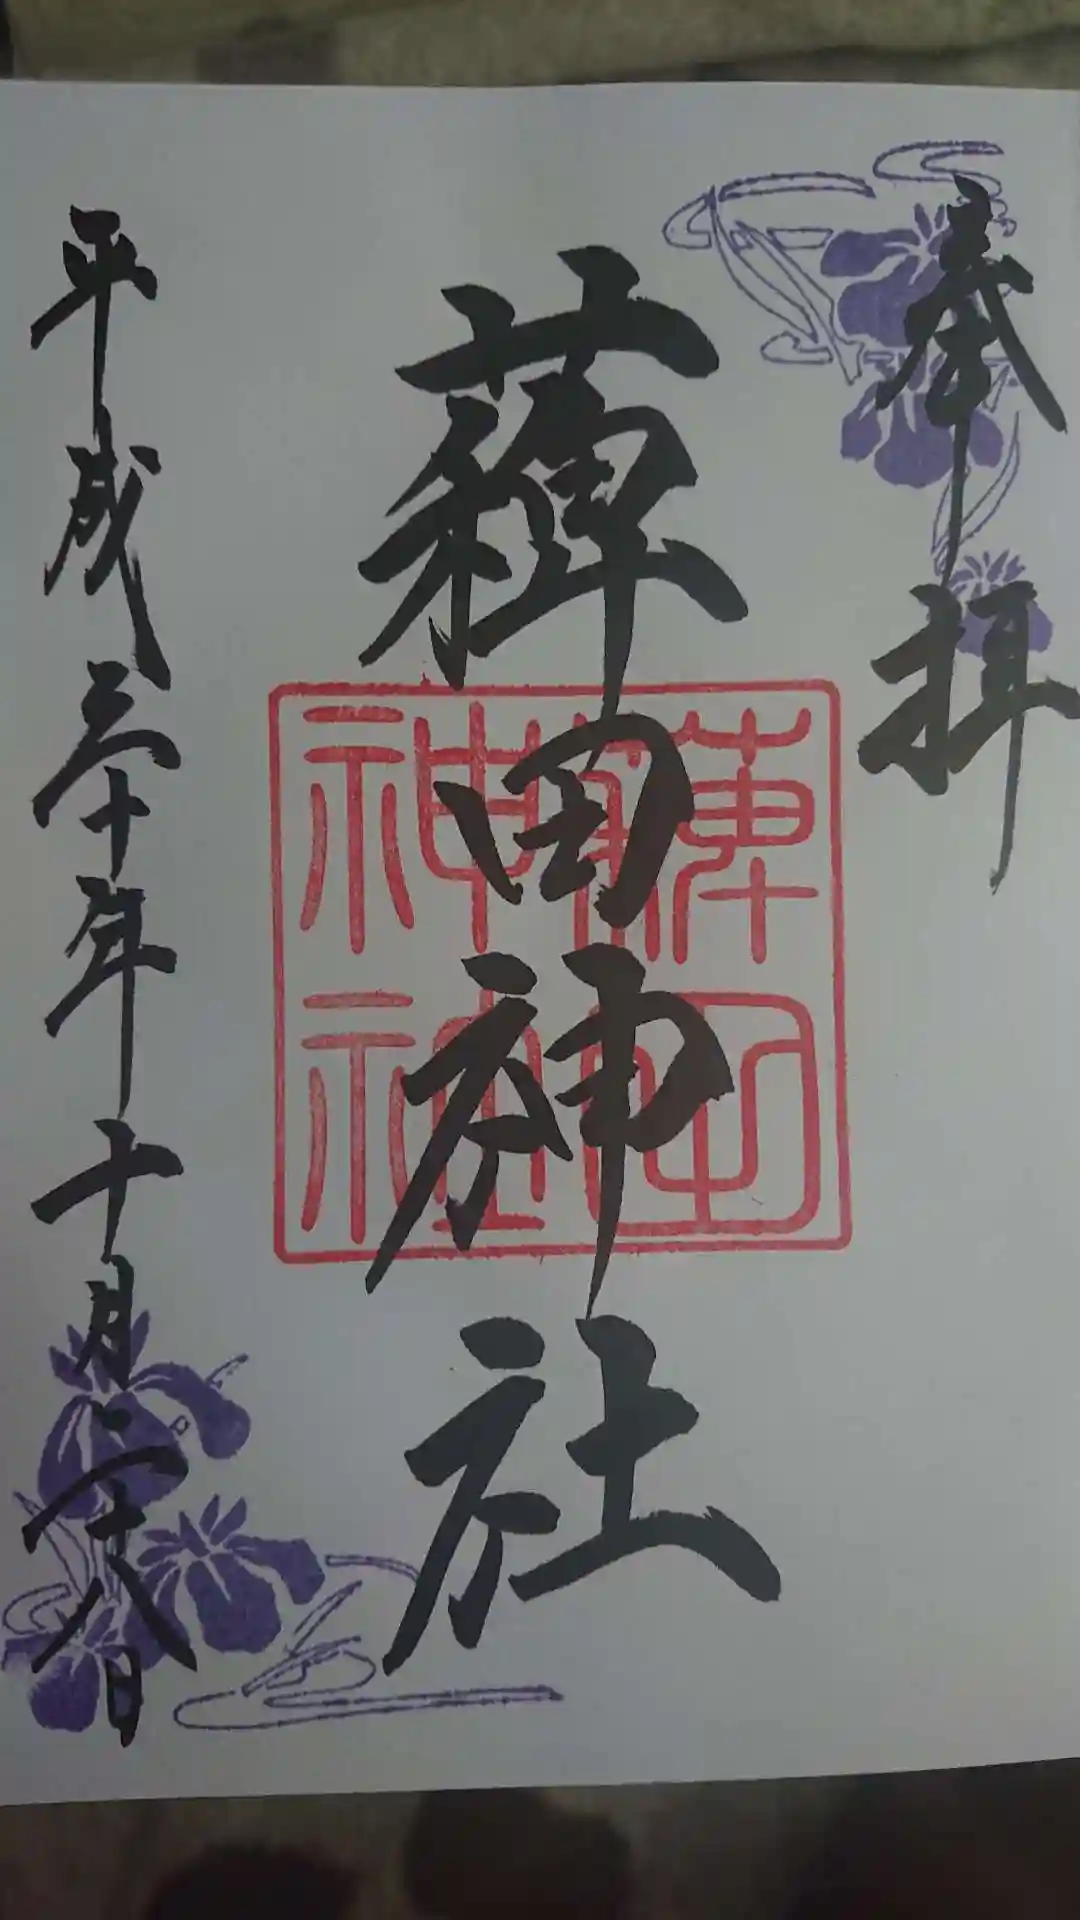 奉拝
薭田神社
薭田
神社
平成三十年十月二十八日